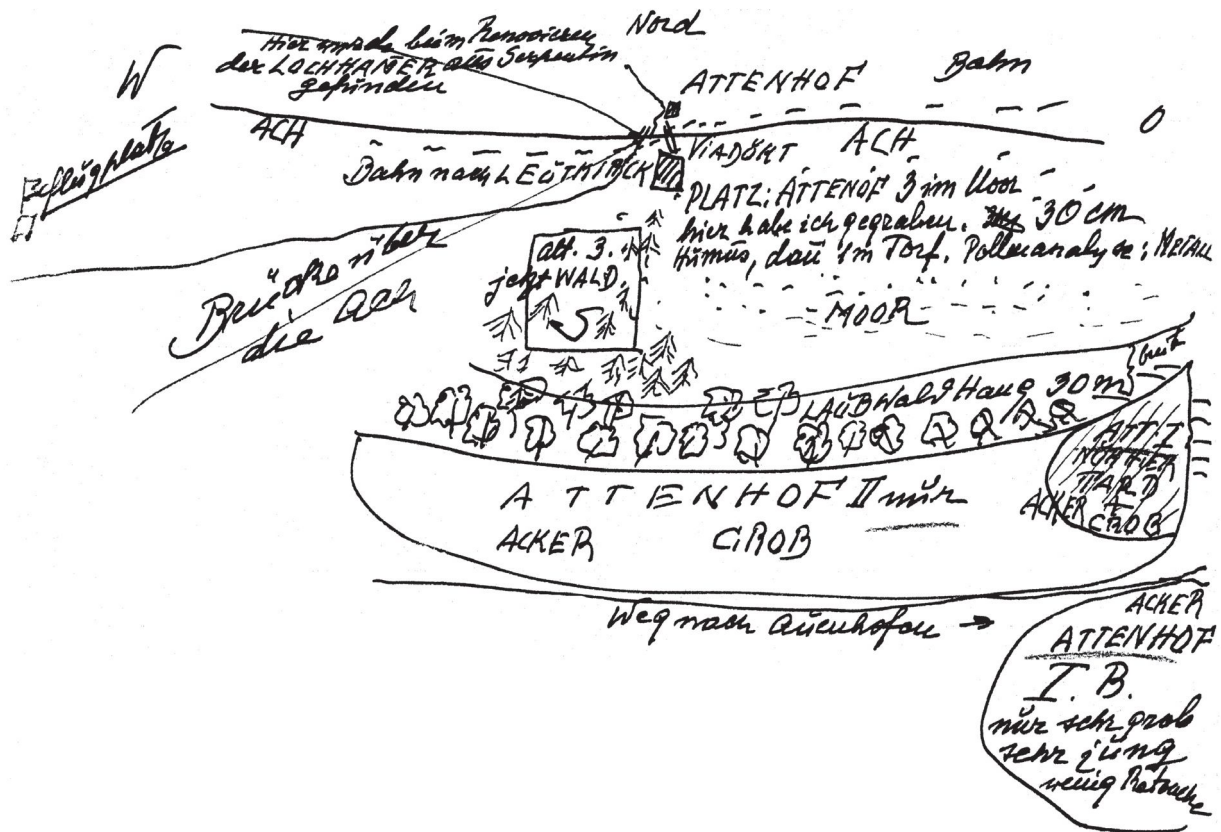 Nord
W
Hier wurde beim Renovieren
der LOCHHAMER aus Serpentin
gefunden
ATTENHOF
Bahn
O
ACH
VIADŬKT
ACH
Bahn nach LEŬTKIRCH
PLATZ: ATTENOF 3 im Moor
hier habe ich gegraben. 30 cm
Hŭmŭs, daŭ im Torf. Pollenanalyse: METALL
flŭgplatz
Brücke über
die Ach
att. 3.
jetzt WALD
MOOR
LAŬBWald Hang 30 m
breit
ATT. I
ACKER
GROB
ATTENHOF II nŭr
ACKER GROB
Weg nach Auenhofen →
ACKER
ATTENHOF
I. B.
nŭr sehr grob
sehr jŭng
wenig Retouche